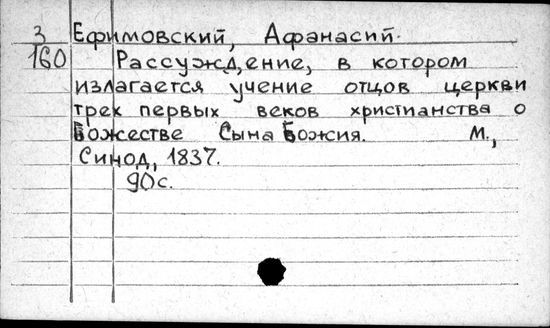 3 Ефимовский, Афанасий.
160 Рассуждение, в котором
излагается учение отцов церкви
трех первых веков христианства о
Божестве Сына Божия. М.,
Синод, 1837.
90с.